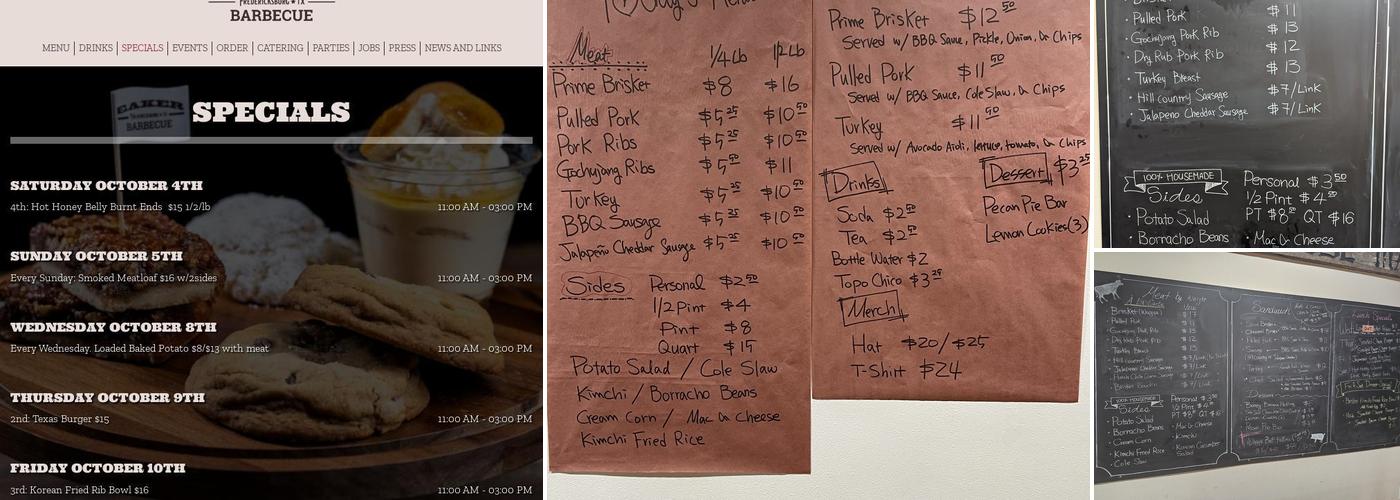 FREDERICKSBURG ★ TX
BARBECUE
MENU | DRINKS | SPECIALS | EVENTS | ORDER | CATERING | PARTIES | JOBS | PRESS | NEWS AND LINKS
EAKER
BARBECUE
SPECIALS
SATURDAY OCTOBER 4TH
4th: Hot Honey Belly Burnt Ends $15 1/2/lb
11:00 AM - 03:00 PM
SUNDAY OCTOBER 5TH
Every Sunday: Smoked Meatloaf $16 w/2sides
11:00 AM - 03:00 PM
WEDNESDAY OCTOBER 8TH
Every Wednesday. Loaded Baked Potato $8/$13 with meat
11:00 AM - 03:00 PM
THURSDAY OCTOBER 9TH
2nd: Texas Burger $15
11:00 AM - 03:00 PM
FRIDAY OCTOBER 10TH
3rd: Korean Fried Rib Bowl $16
11:00 AM - 03:00 PM
Meat 1/4 Lb 1/2 Lb
Prime Brisket $8 $16
Pulled Pork $5.25 $10.50
Pork Ribs $5.25 $10.50
Gochujang Ribs $5.50 $11
Turkey $5.25 $10.50
BBQ Sausage $5.25 $10.50
Jalapeño Cheddar Sausage $5.25 $10.50
Sides Personal $2.50
1/2 Pint $4
Pint $8
Quart $15
Potato Salad / Cole Slaw
Kimchi / Borracho Beans
Cream Corn / Mac & Cheese
Kimchi Fried Rice
Prime Brisket $12.50
Served w/ BBQ Sauce, Pickle, Onion, & Chips
Pulled Pork $11.50
Served w/ BBQ Sauce, Cole Slaw, & Chips
Turkey $11.50
Served w/ Avocado Aioli, lettuce, tomato, & Chips
Drinks
Soda $2.50
Tea $2.50
Bottle Water $2
Topo Chico $3.25
Dessert $3.25
Pecan Pie Bar
Lemon Cookies (3)
Merch
Hat $20/$25
T-Shirt $24
• Pulled Pork $11
• Gochujang Pork Rib $13
• Dry Rub Pork Rib $12
• Turkey Breast $13
• Hill Country Sausage $7/Link
• Jalapeno Cheddar Sausage $7/Link
100% HOUSEMADE
Sides
Personal $3.50
1/2 Pint $4.50
PT $8.50 QT $16
• Potato Salad
• Borracho Beans • Mac & Cheese
Meat by Weight
• Pulled Pork
• Gochujang Pork Rib
• Dry Rub Pork Rib
• Turkey Breast
• Hill Country Sausage
• Jalapeno Cheddar Sausage
100% HOUSEMADE
Sides
• Potato Salad
• Borracho Beans
• Cream Corn
• Kimchi Fried Rice
• Cole Slaw
• Mac & Cheese
• Kimchi
• Korean Cucumber Salad
Sandwich
Dessert